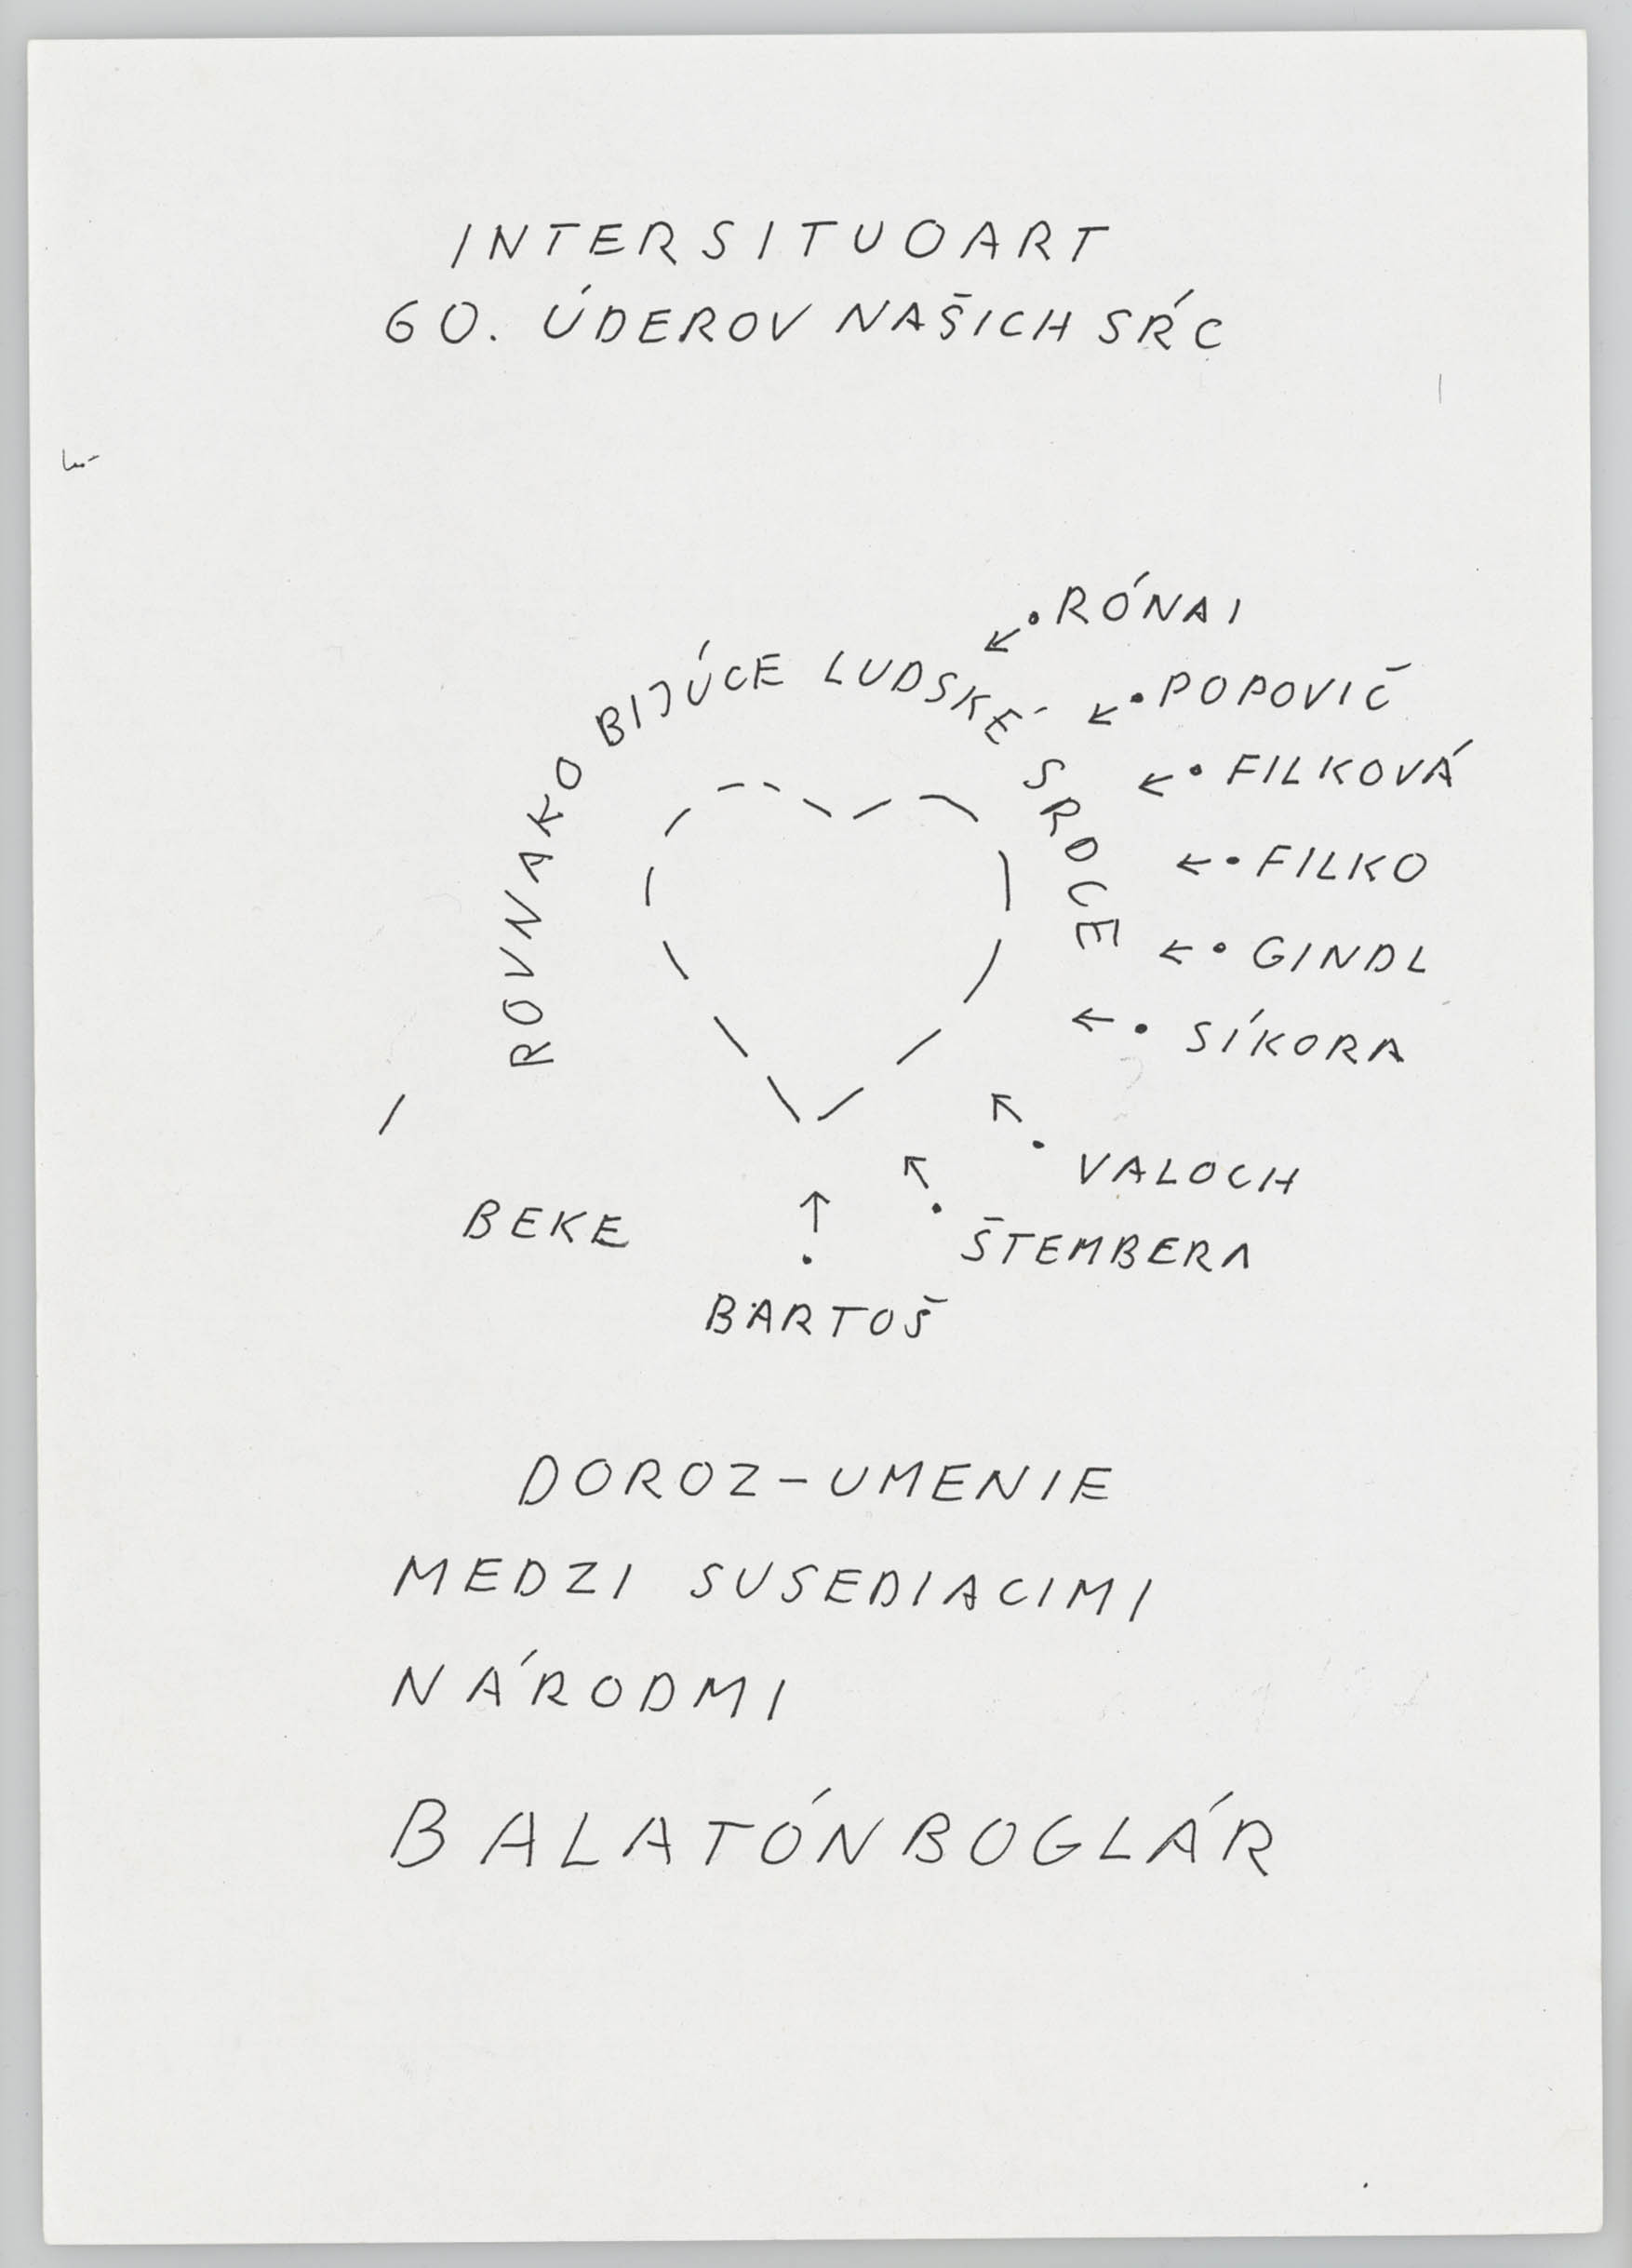 INTERSITUOART
60. ÚDEROV NAŠICH SŔC
ROVNAKO BIJÚCE LUDSKÉ SRDCE
RÓNAI
POPOVIČ
FILKOVÁ
FILKO
GINDL
SÍKORA
VALOCH
ŠTEMBERA
BEKE
BARTOŠ
DOROZ-UMENIE
MEDZI SUSEDIACIMI
NÁRODMI
BALATÓNBOGLÁR